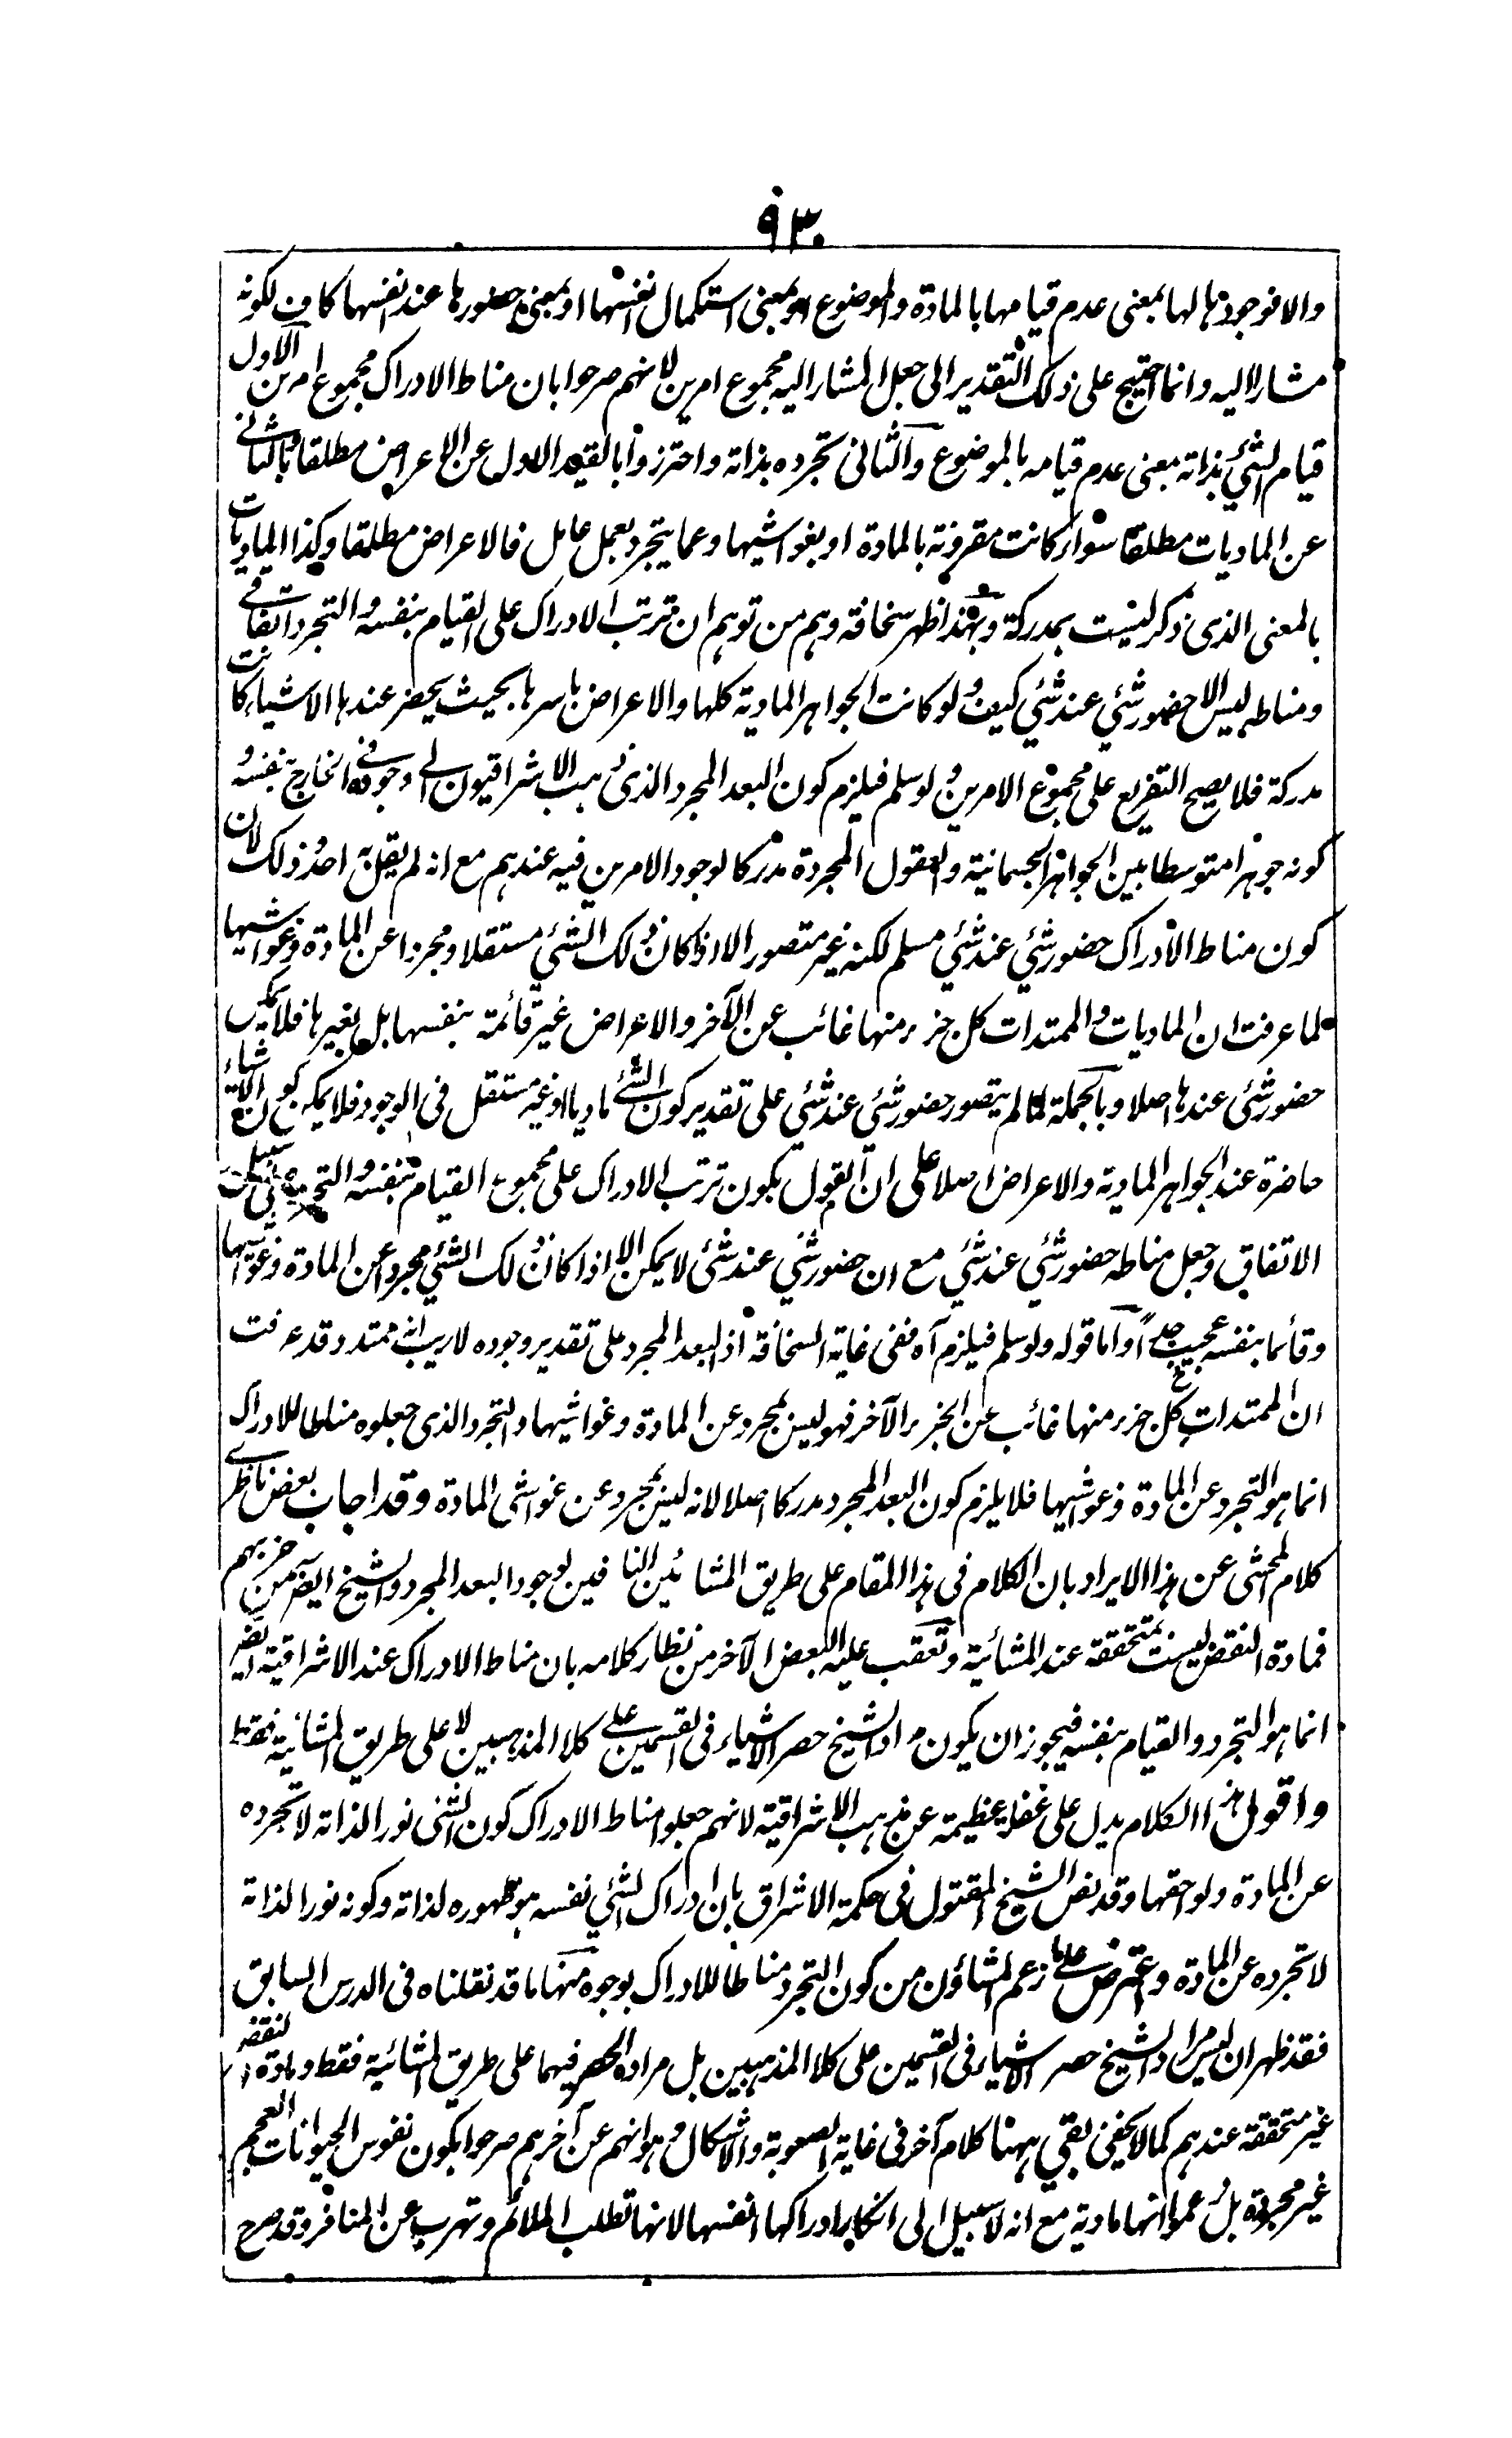 ٩٣
والا فوجودها لها بمعنى عدم قيامها بالمادة والموضوع او بمعنى استكمال نفسها او بمعنى حضورها عند نفسها كاف لكونه
مشارا اليه وانما احتيج على ذلك التقدير الى جعل المشار اليه مجموع امرين لانهم صرحوا بان مناط الادراك مجموع امرين الاول
قيام الشئي بذاته بمعنى عدم قيامه بالموضوع والثانى تجرده بذاته واحترزوا بالقيد الاول عن الاعراض مطلقا وبالثانے
عن الماديات مطلقا سواء كانت مقرونة بالمادة او بغواشيها وعما يتجرد بعمل عامل فالاعراض مطلقا وكذا الماديات
بالمعنى الذى ذكر ليست بمدركة وبهذا ظهر سخافة وهم من توهم ان ترتب الادراك على القيام بنفسه والتجرد اتفاقے
ومناطه ليس الا حضور شئي عند شئي كيف ولو كانت الجواهر المادية كلها والاعراض باسرها بحيث يحضر عندها الاشياء كانت
مدركة فلا يصح التفريع على مجموع الامرين ولو سلم فيلزم كون البعد المجرد الذى ذهب الاشراقيون الے وجوده فى الخارج بنفسه و
كونه جوهرا متوسطا بين الجواهر الجسمانية والعقول المجردة مدركا لوجود الامرين فيه عندهم مع انه لم يقل به احد وذلك لان
كون مناط الادراك حضور شئي عند شئي مسلم لكنه غير متصور الا اذا كان ذلك الشئي مستقلا ومجردا عن المادة وغواشيها
لما عرفت ان الماديات والممتدات كل جزء منها غائب عن الآخر والاعراض غير قائمة بنفسها بل بغيرها فلا يمكن
حضور شئي عندها اصلا وبالجملة لما لم يتصور حضور شئي عند شئي على تقدير كون الشئے ماديا او غير مستقل فى الوجود فلا يمكن كون الاشياء
حاضرة عند الجواهر المادية والاعراض اصلا على ان القول بكون ترتب الادراك على مجموع القيام بنفسه والتجرد على سبيل
الاتفاق وجعل مناطه حضور شئي عند شئي مع ان حضور شئي عند شئي لا يمكن الا اذا كان ذلك الشئي مجردا عن المادة وغواشيها
وقائما بنفسه عجيب جدا واما قوله ولو سلم فيلزم آه ففى غاية السخافة اذ البعد المجرد على تقدير وجوده لاريب انه ممتد وقد عرفت
ان الممتدات كل جزء منها غائب عن الجزء الآخر فهو ليس بمجرد عن المادة وغواشيها والتجرد الذى جعلوه مناطا للادراك
انما هو التجرد عن المادة وغواشيها فلا يلزم كون البعد المجرد مدركا اصلا لانه ليس بمجرد عن غواشى المادة وقد اجاب بعض ناظرے
كلام المحشى عن هذا الايراد بان الكلام فى هذا المقام على طريق المشائين النافين لوجود البعد المجرد والشيخ ايضا من حزبهم
فمادة النقض ليست بمتحققة عند المشائية وتعقب عليه البعض الآخر من نظار كلامه بان مناط الادراك عند الاشراقية ايضا
انما هو التجرد والقيام بنفسه فيجوز ان يكون مراد الشيخ حصر الاشياء فى القسمين على كلا المذهبين لا على طريق المشائية فقط
واقول هذا الكلام يدل على غفلة عظيمة عن مذهب الاشراقية لانهم جعلوا مناط الادراك كون الشئى نورا لذاته لا تجرده
عن المادة ولواحقها وقد نص الشيخ المقتول فى حكمة الاشراق بان ادراك الشئي نفسه هو ظهوره لذاته وكونه نورا لذاته
لا تجرده عن المادة واعترض على ما زعم المشاؤن من كون التجرد مناطا للادراك بوجوه منها ما قد نقلناه فى الدرس السابق
فقد ظهر ان ليس مراد الشيخ حصر الاشياء فى القسمين على كلا المذهبين بل مراده الحصر فيهما على طريق المشائية فقط ومادة النقض
غير متحققة عندهم كما لا يخفى بقى ههنا كلام آخر فى غاية الصعوبة والاشكال وهو انهم عن آخرهم صرحوا بكون نفوس الحيوانات العجم
غير مجردة بل زعموا انها مادية مع انه لا سبيل الى انكار ادراكها انفسها لانها تطلب الملائم وتهرب عن المنافر وقد صرح